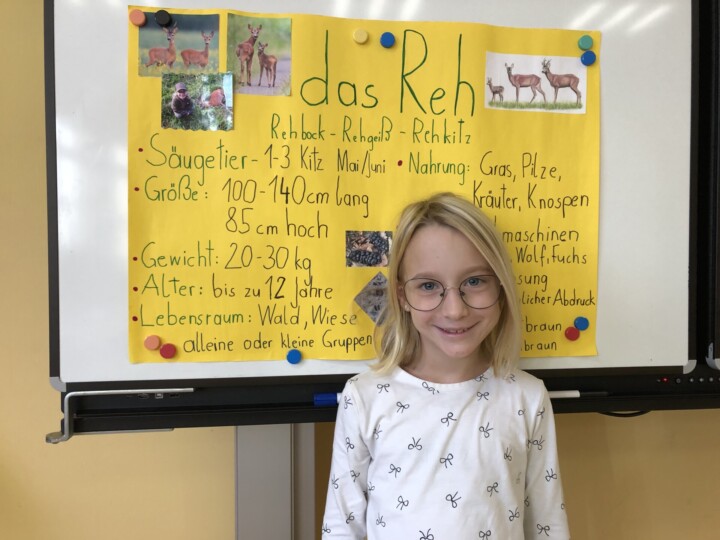 das Reh
Rehbock - Rehgeiß - Rehkitz
• Säugetier - 1-3 Kitz Mai/Juni
• Größe: 100-140cm lang
85 cm hoch
• Gewicht: 20-30 kg
• Alter: bis zu 12 Jahre
• Lebensraum: Wald, Wiese
alleine oder kleine Gruppen
• Nahrung: Gras, Pilze,
Kräuter, Knospen
maschinen
Wolf, Fuchs
sung
licher Abdruck
braun
braun